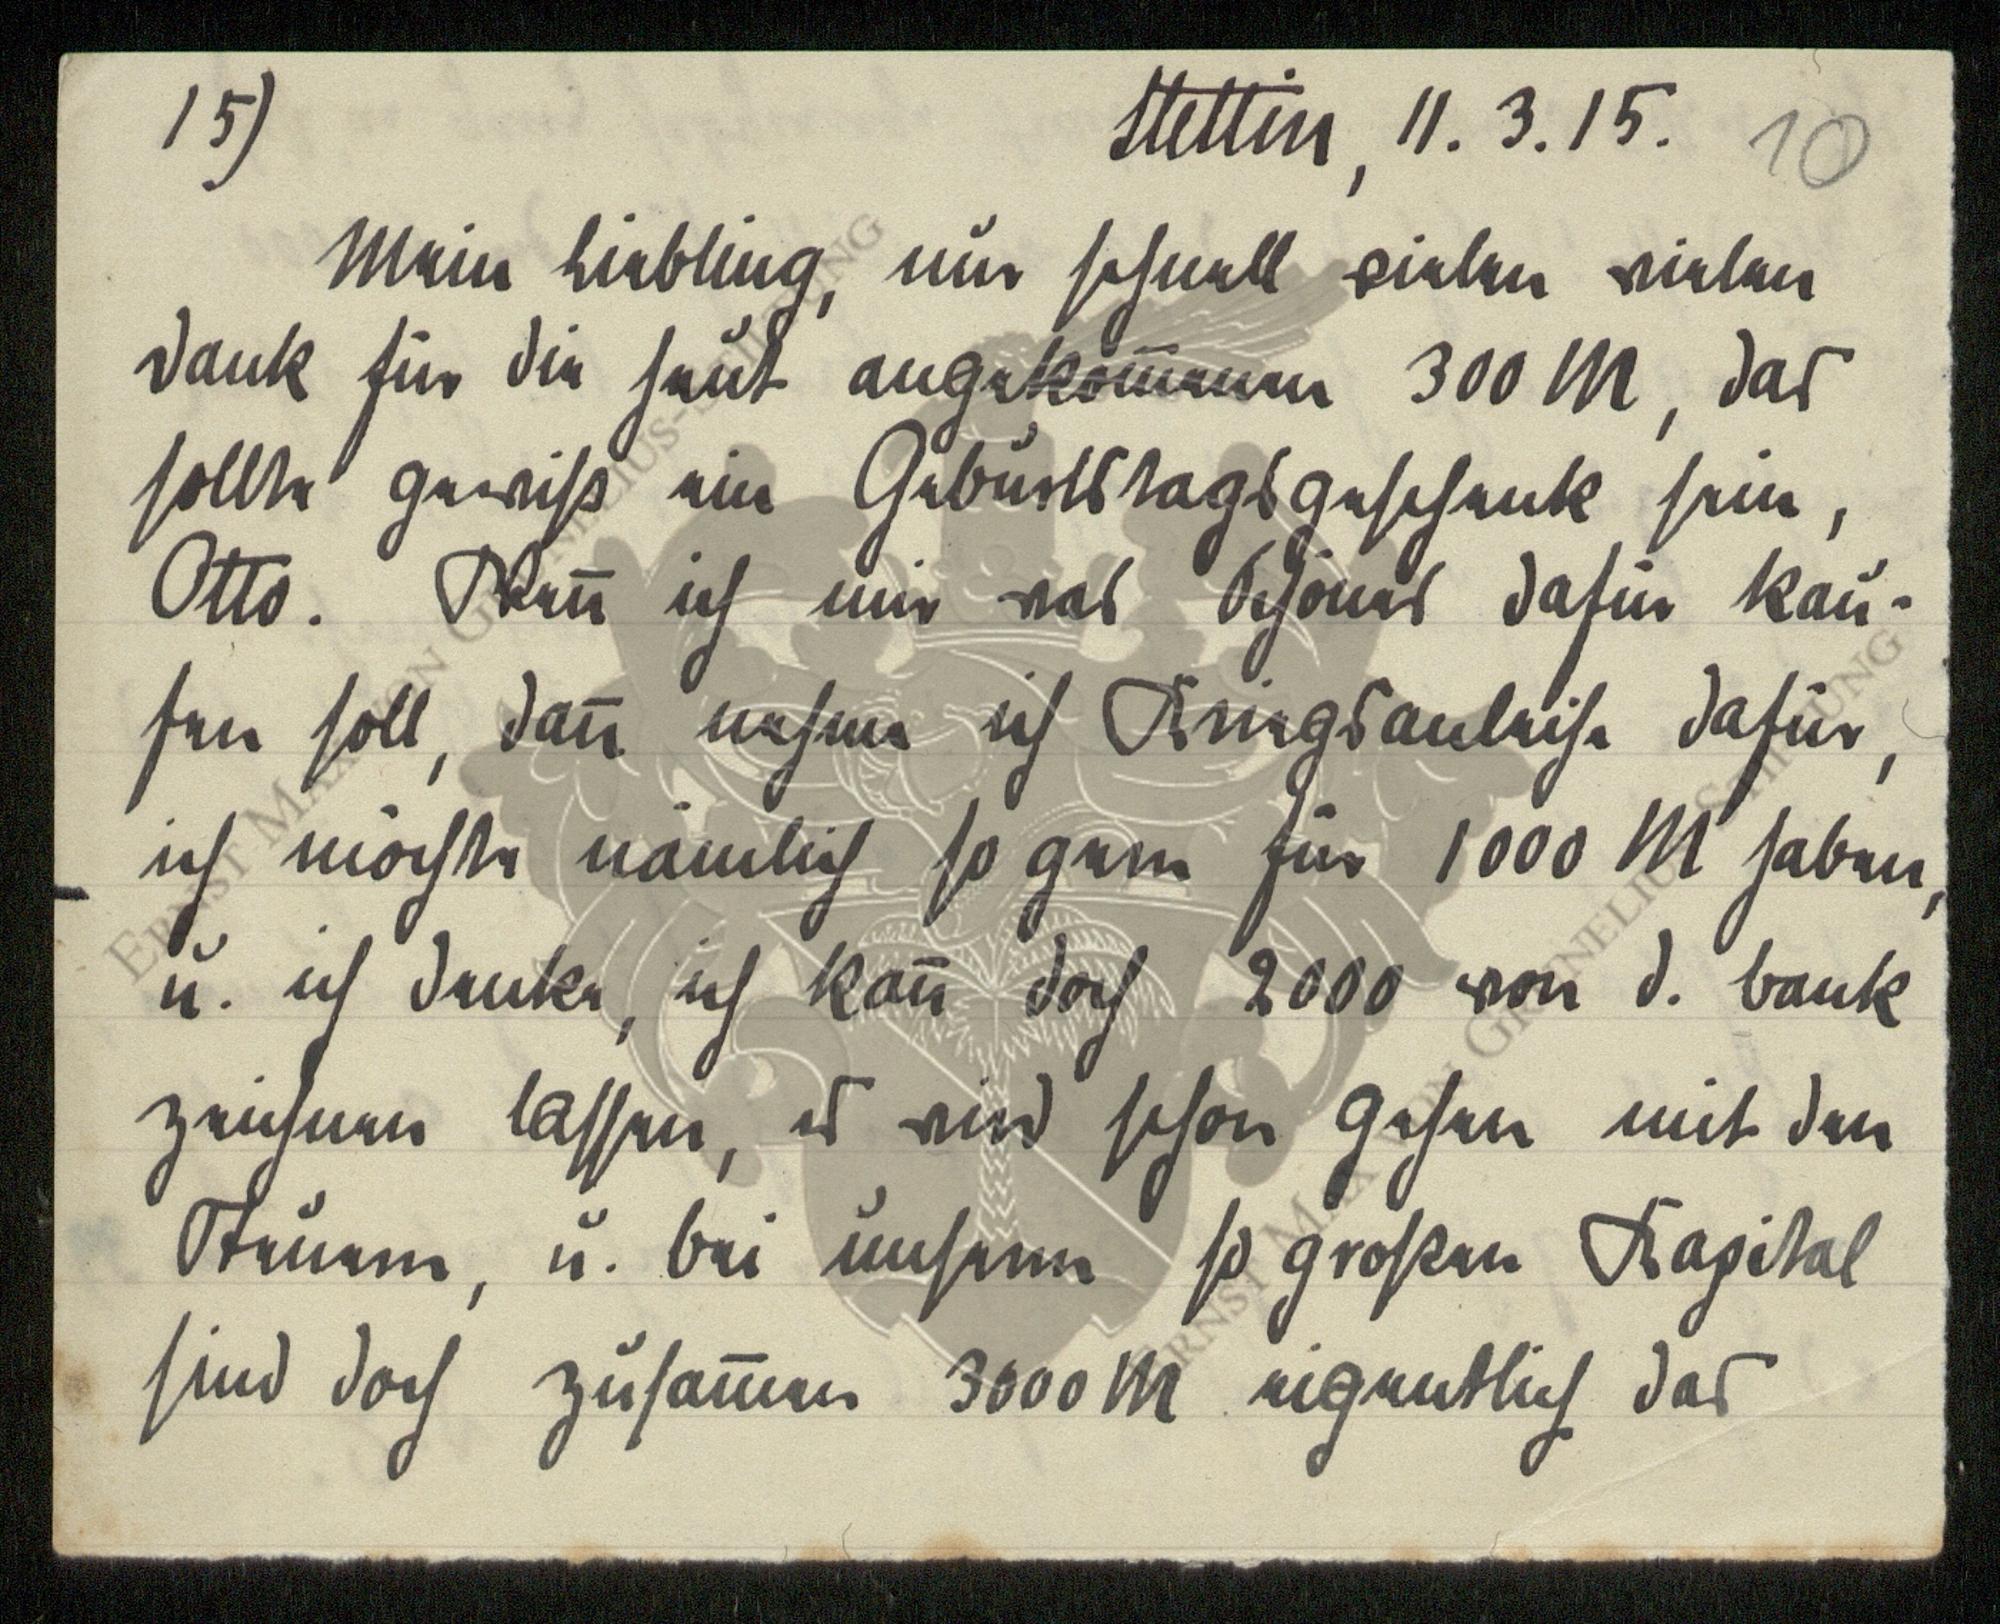 15) Stettin, 11. 3. 15. 10
Mein Liebling, nur schnell vielen vielen
Dank für die heut angekom̅enen 300 M, das
sollte gewiß ein Geburtstagsgeschenk sein,
Otto. Wen̅ ich mir was Schönes dafür kau-
fen soll, dan̅ nehme ich Kriegsanleihe dafür,
ich möchte nämlich so gern für 1000 M haben,
u. ich denke, ich kan̅ doch 2000 von d. bank
zeichnen lassen, es wird schon gehen mit den
Steuern, u. bei unserm so großen Kapital
sind doch zusam̅en 3000 M eigentlich das
ERNST MAX VON GRUNELIUS-STIFTUNG
ERNST MAX VON GRUNELIUS-STIFTUNG